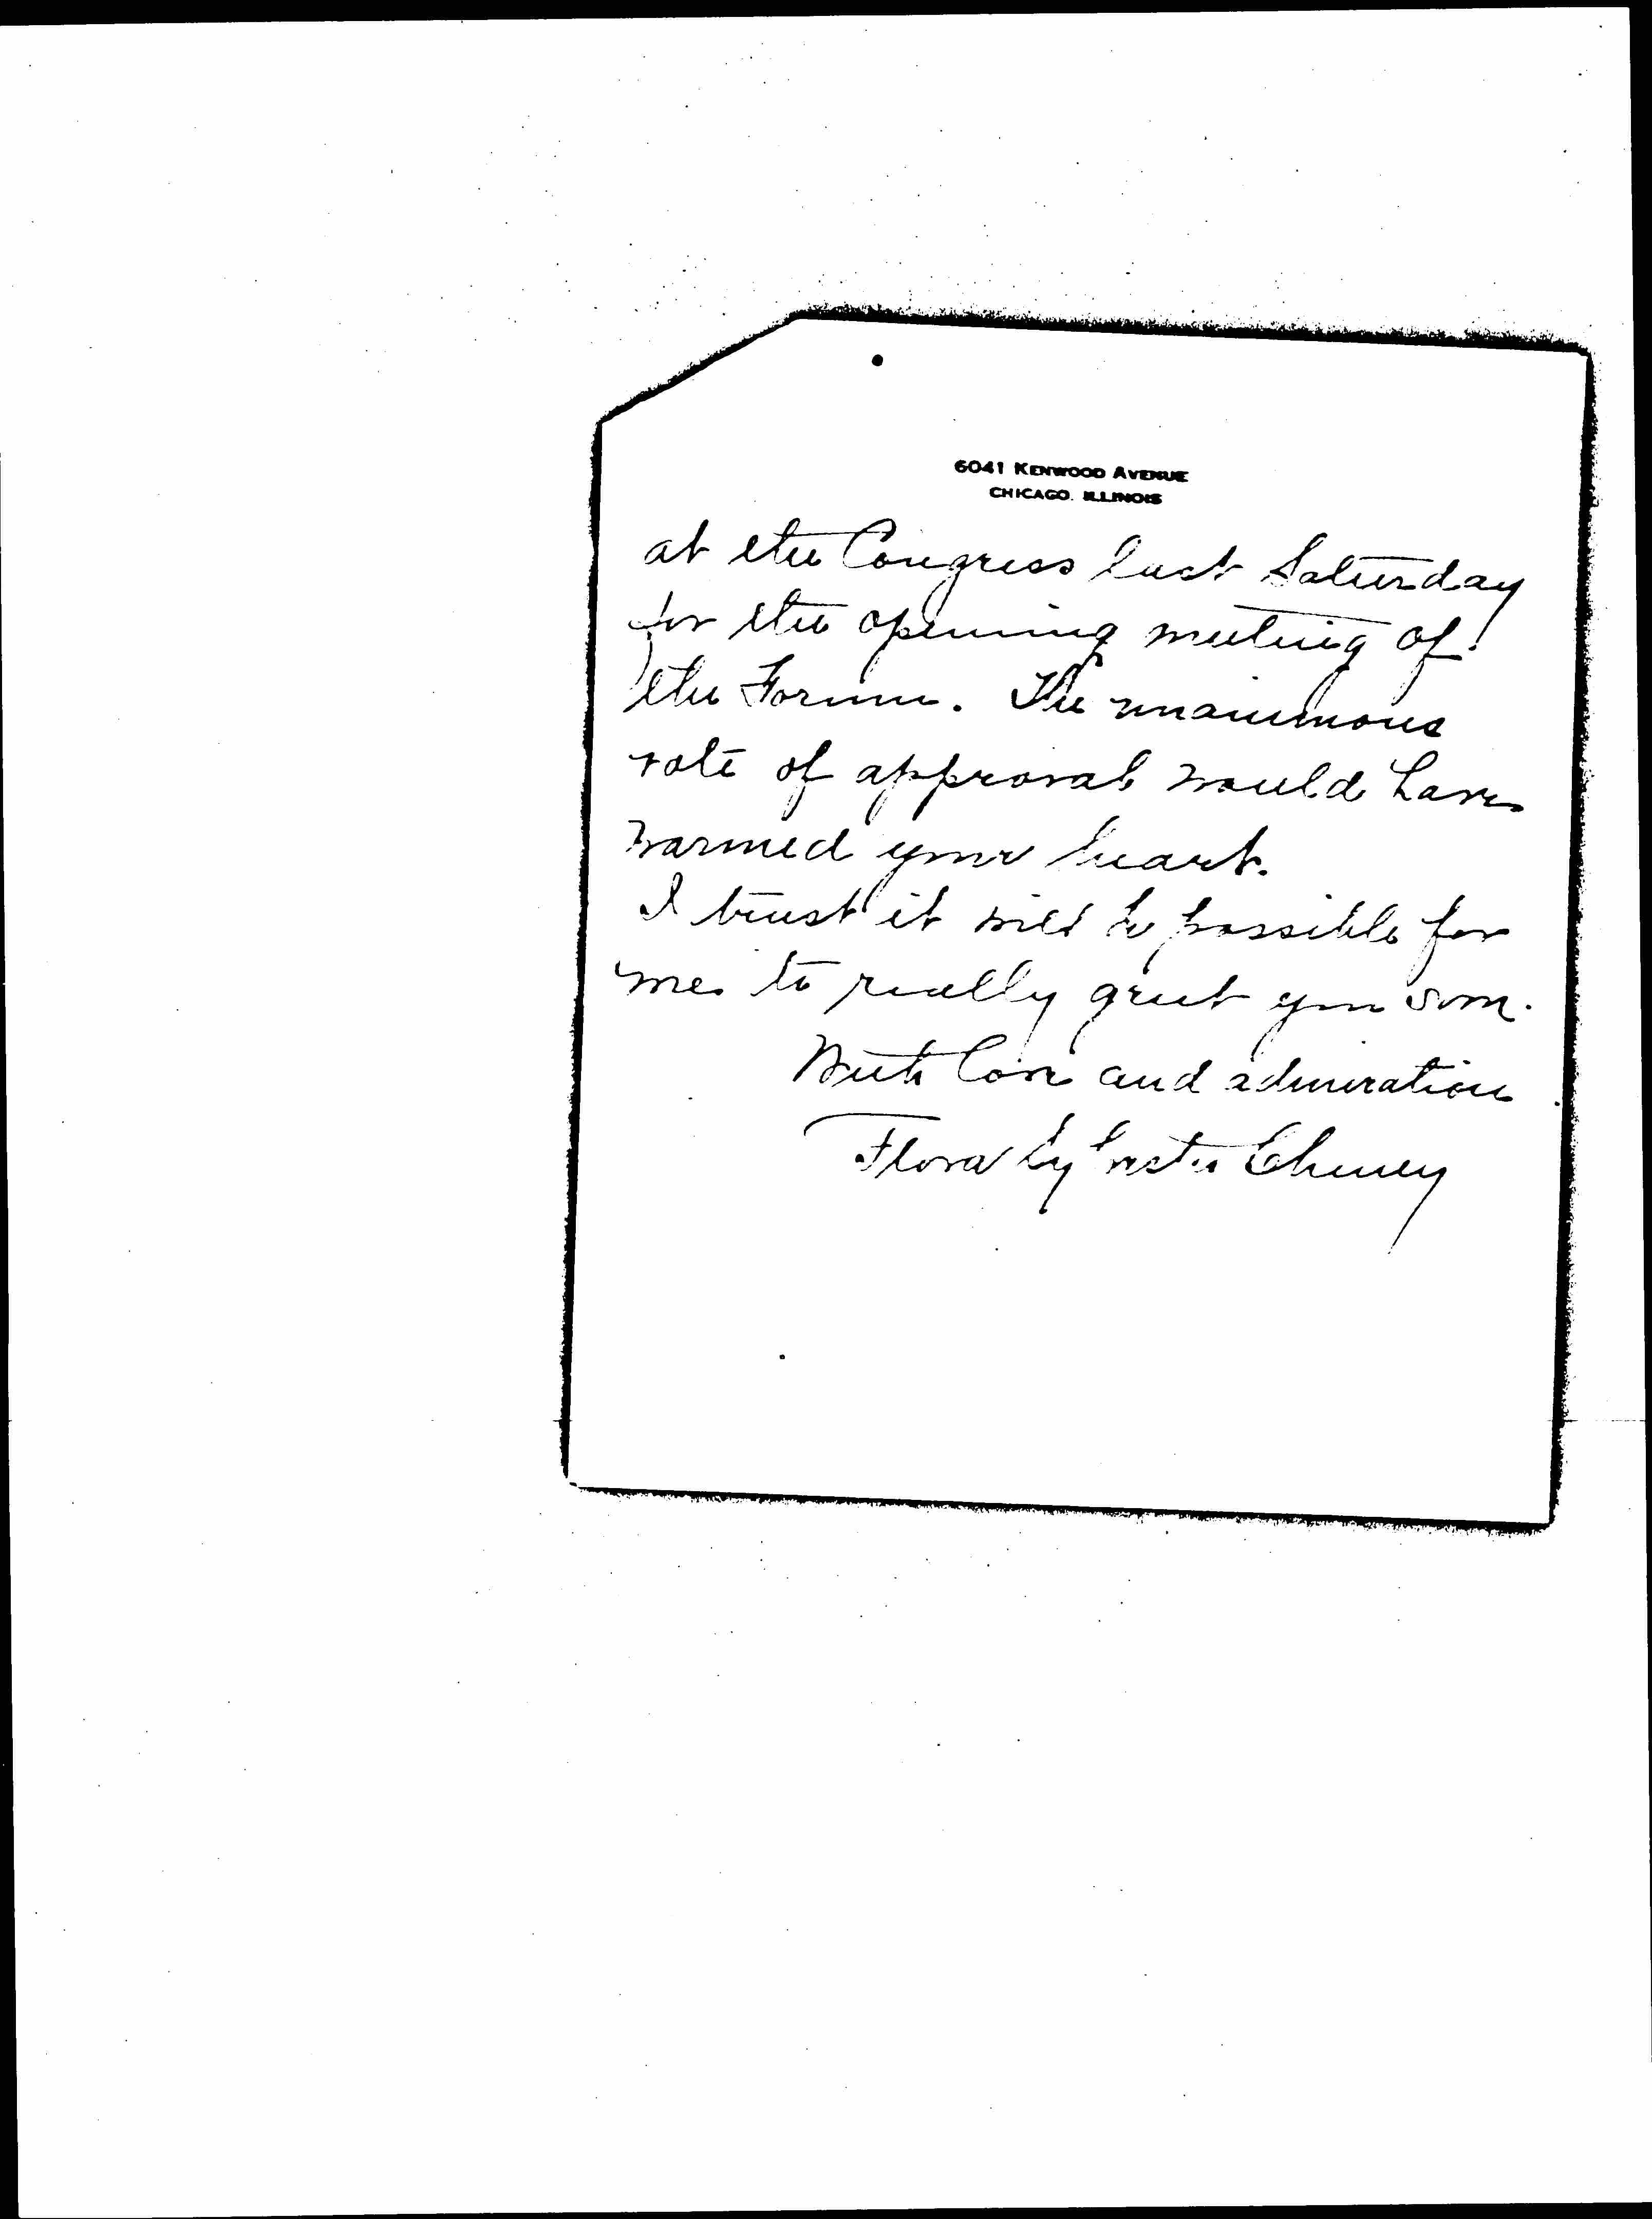 6041 KENWOOD AVENUE
CHICAGO, ILLINOIS
at the Congress last Saturday
for the opening meeting of
the Forum. The unanimous
vote of approval would have
warmed your heart.
I trust it will be possible for
me to really greet you soon.
With love and admiration
Flora Sylvester Cheney